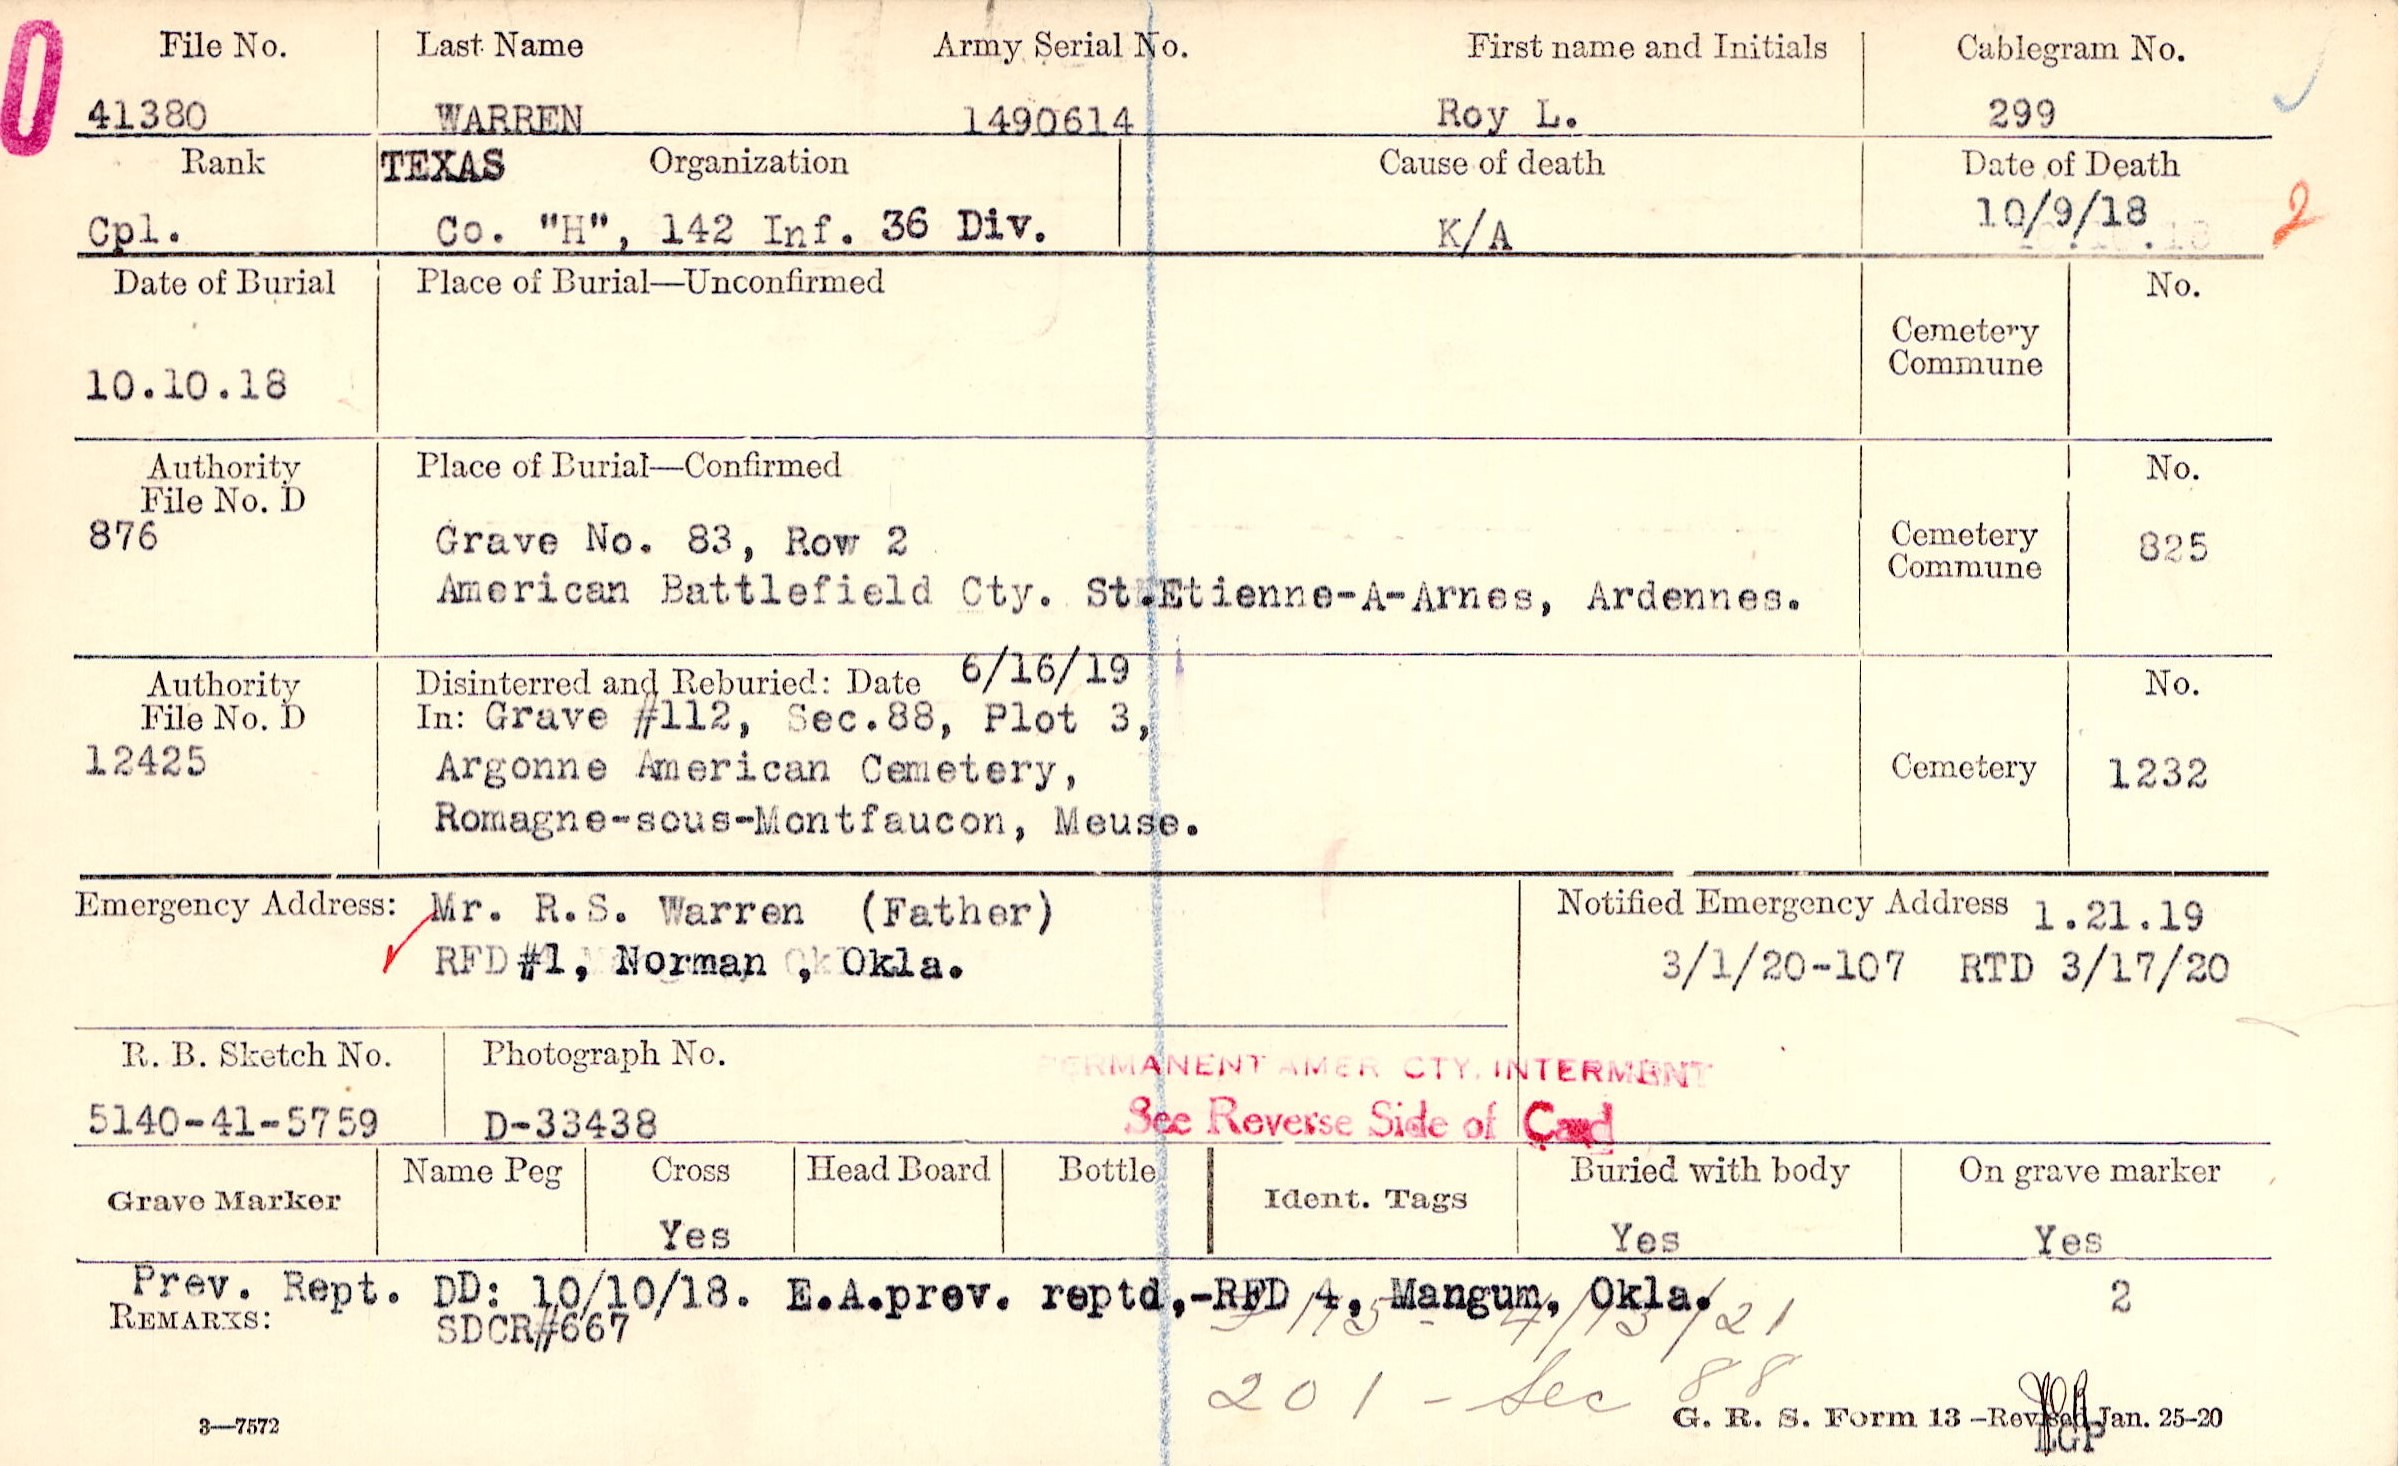 0
File No. Last Name Army Serial No. First name and Initials Cablegram No.
41380 WARREN 1490614 Roy L. 299
Rank TEXAS Organization Cause of death Date of Death
Cpl. Co. "H", 142 Inf. 36 Div. K/A 10/9/18 2
Date of Burial Place of Burial—Unconfirmed No.
Cemetery
Commune
10.10.18
Authority Place of Burial—Confirmed No.
File No. D
876 Grave No. 83, Row 2 Cemetery 825
Commune
American Battlefield Cty. St.Etienne-A-Arnes, Ardennes.
Authority Disinterred and Reburied: Date 6/16/19 No.
File No. D In: Grave #112, Sec.88, Plot 3,
12425 Argonne American Cemetery, Cemetery 1232
Romagne-sous-Montfaucon, Meuse.
Emergency Address: Mr. R.S. Warren (Father) Notified Emergency Address 1.21.19
RFD #1, Norman , Okla. 3/1/20-107 RTD 3/17/20
R. B. Sketch No. Photograph No. PERMANENT AMER CTY. INTERMENT
5140-41-5759 D-33438 See Reverse Side of Card
Grave Marker Name Peg Cross Head Board Bottle Ident. Tags Buried with body On grave marker
Yes Yes Yes
Prev. Rept. DD: 10/10/18. E.A.prev. reptd,-RFD 4, Mangum, Okla. 2
REMARKS: SDCR#667 4/13/21
201 - Sec 88
3—7572 G. R. S. Form 13 -Revised Jan. 25-20